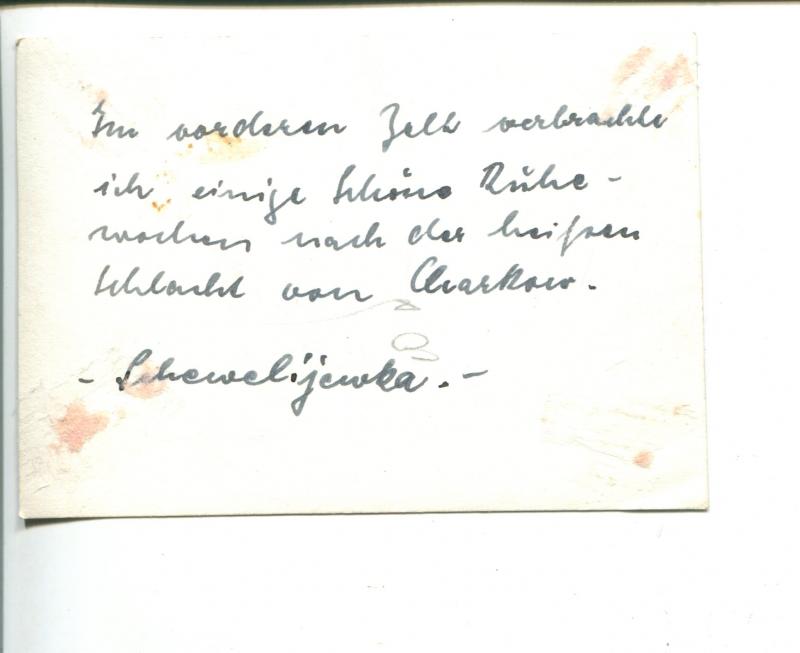 Im vorderen Zelt verbrachte
ich einige schöne Ruhe-
wochen nach der heißen
Schlacht von Charkow.
- Schewelijewka. -